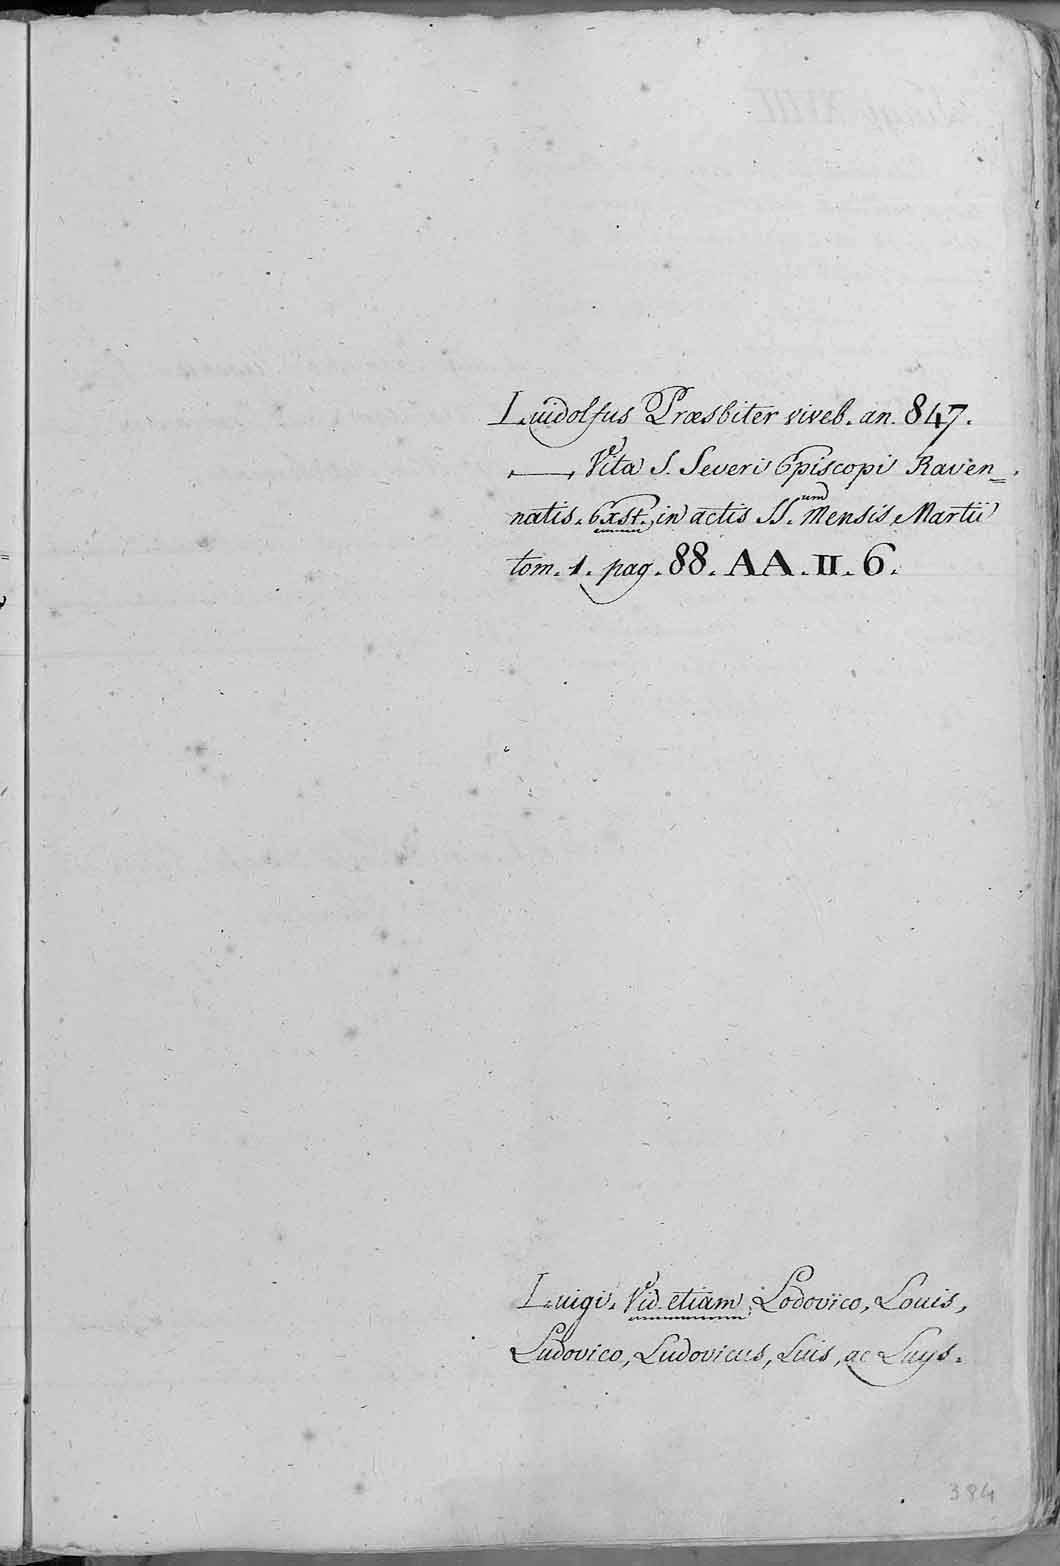 Luidolfus Præsbiter viveb. an. 847.
—— Vita S. Severi Episcopi Raven=
natis. Exst. in actis SS.um Mensis Martii
tom. 1. pag. 88. AA. II. 6.
Luigi. Vid. etiam Lodovico, Louis,
Ludovico, Ludovicus, Luis, ac Luys.
384